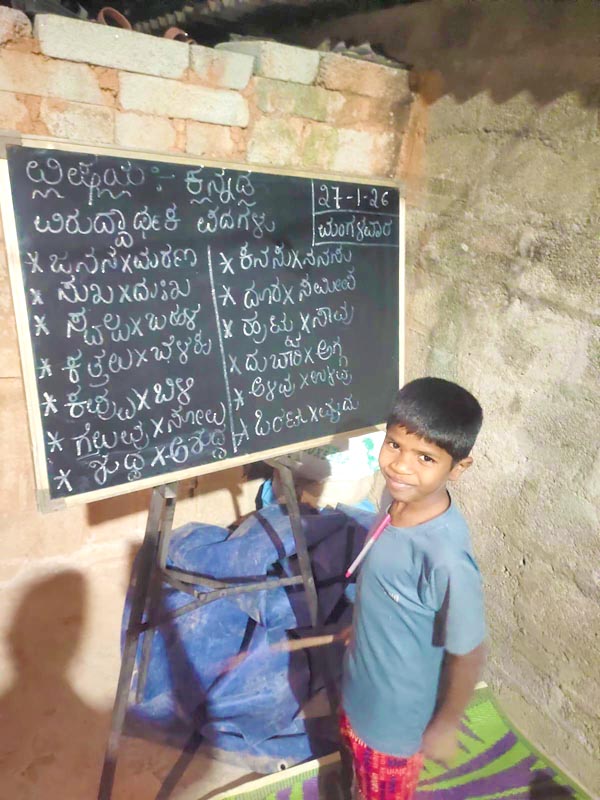 ವಿಷಯ :- ಕನ್ನಡ
27-1-26
ವಿರುದ್ಧಾರ್ಥಕ ಪದಗಳು
ಮಂಗಳವಾರ
* ಜನನ x ಮರಣ
* ಸುಖ x ದುಃಖ
* ಸ್ವಲ್ಪ x ಬಹಳ
* ಕತ್ತಲು x ಬೆಳಕು
* ಕಪ್ಪು x ಬಿಳಿ
* ಗೆಲುವು x ಸೋಲು
* ಶುದ್ಧ x ಅಶುದ್ಧ
* ಕನಸು x ನನಸು
* ದೂರ x ಸಮೀಪ
* ಹುಟ್ಟು x ಸಾವು
* ದುಬಾರಿ x ಅಗ್ಗ
* ಅಳಿವು x ಉಳಿವು
* ಒರಟು x ಮೃದು